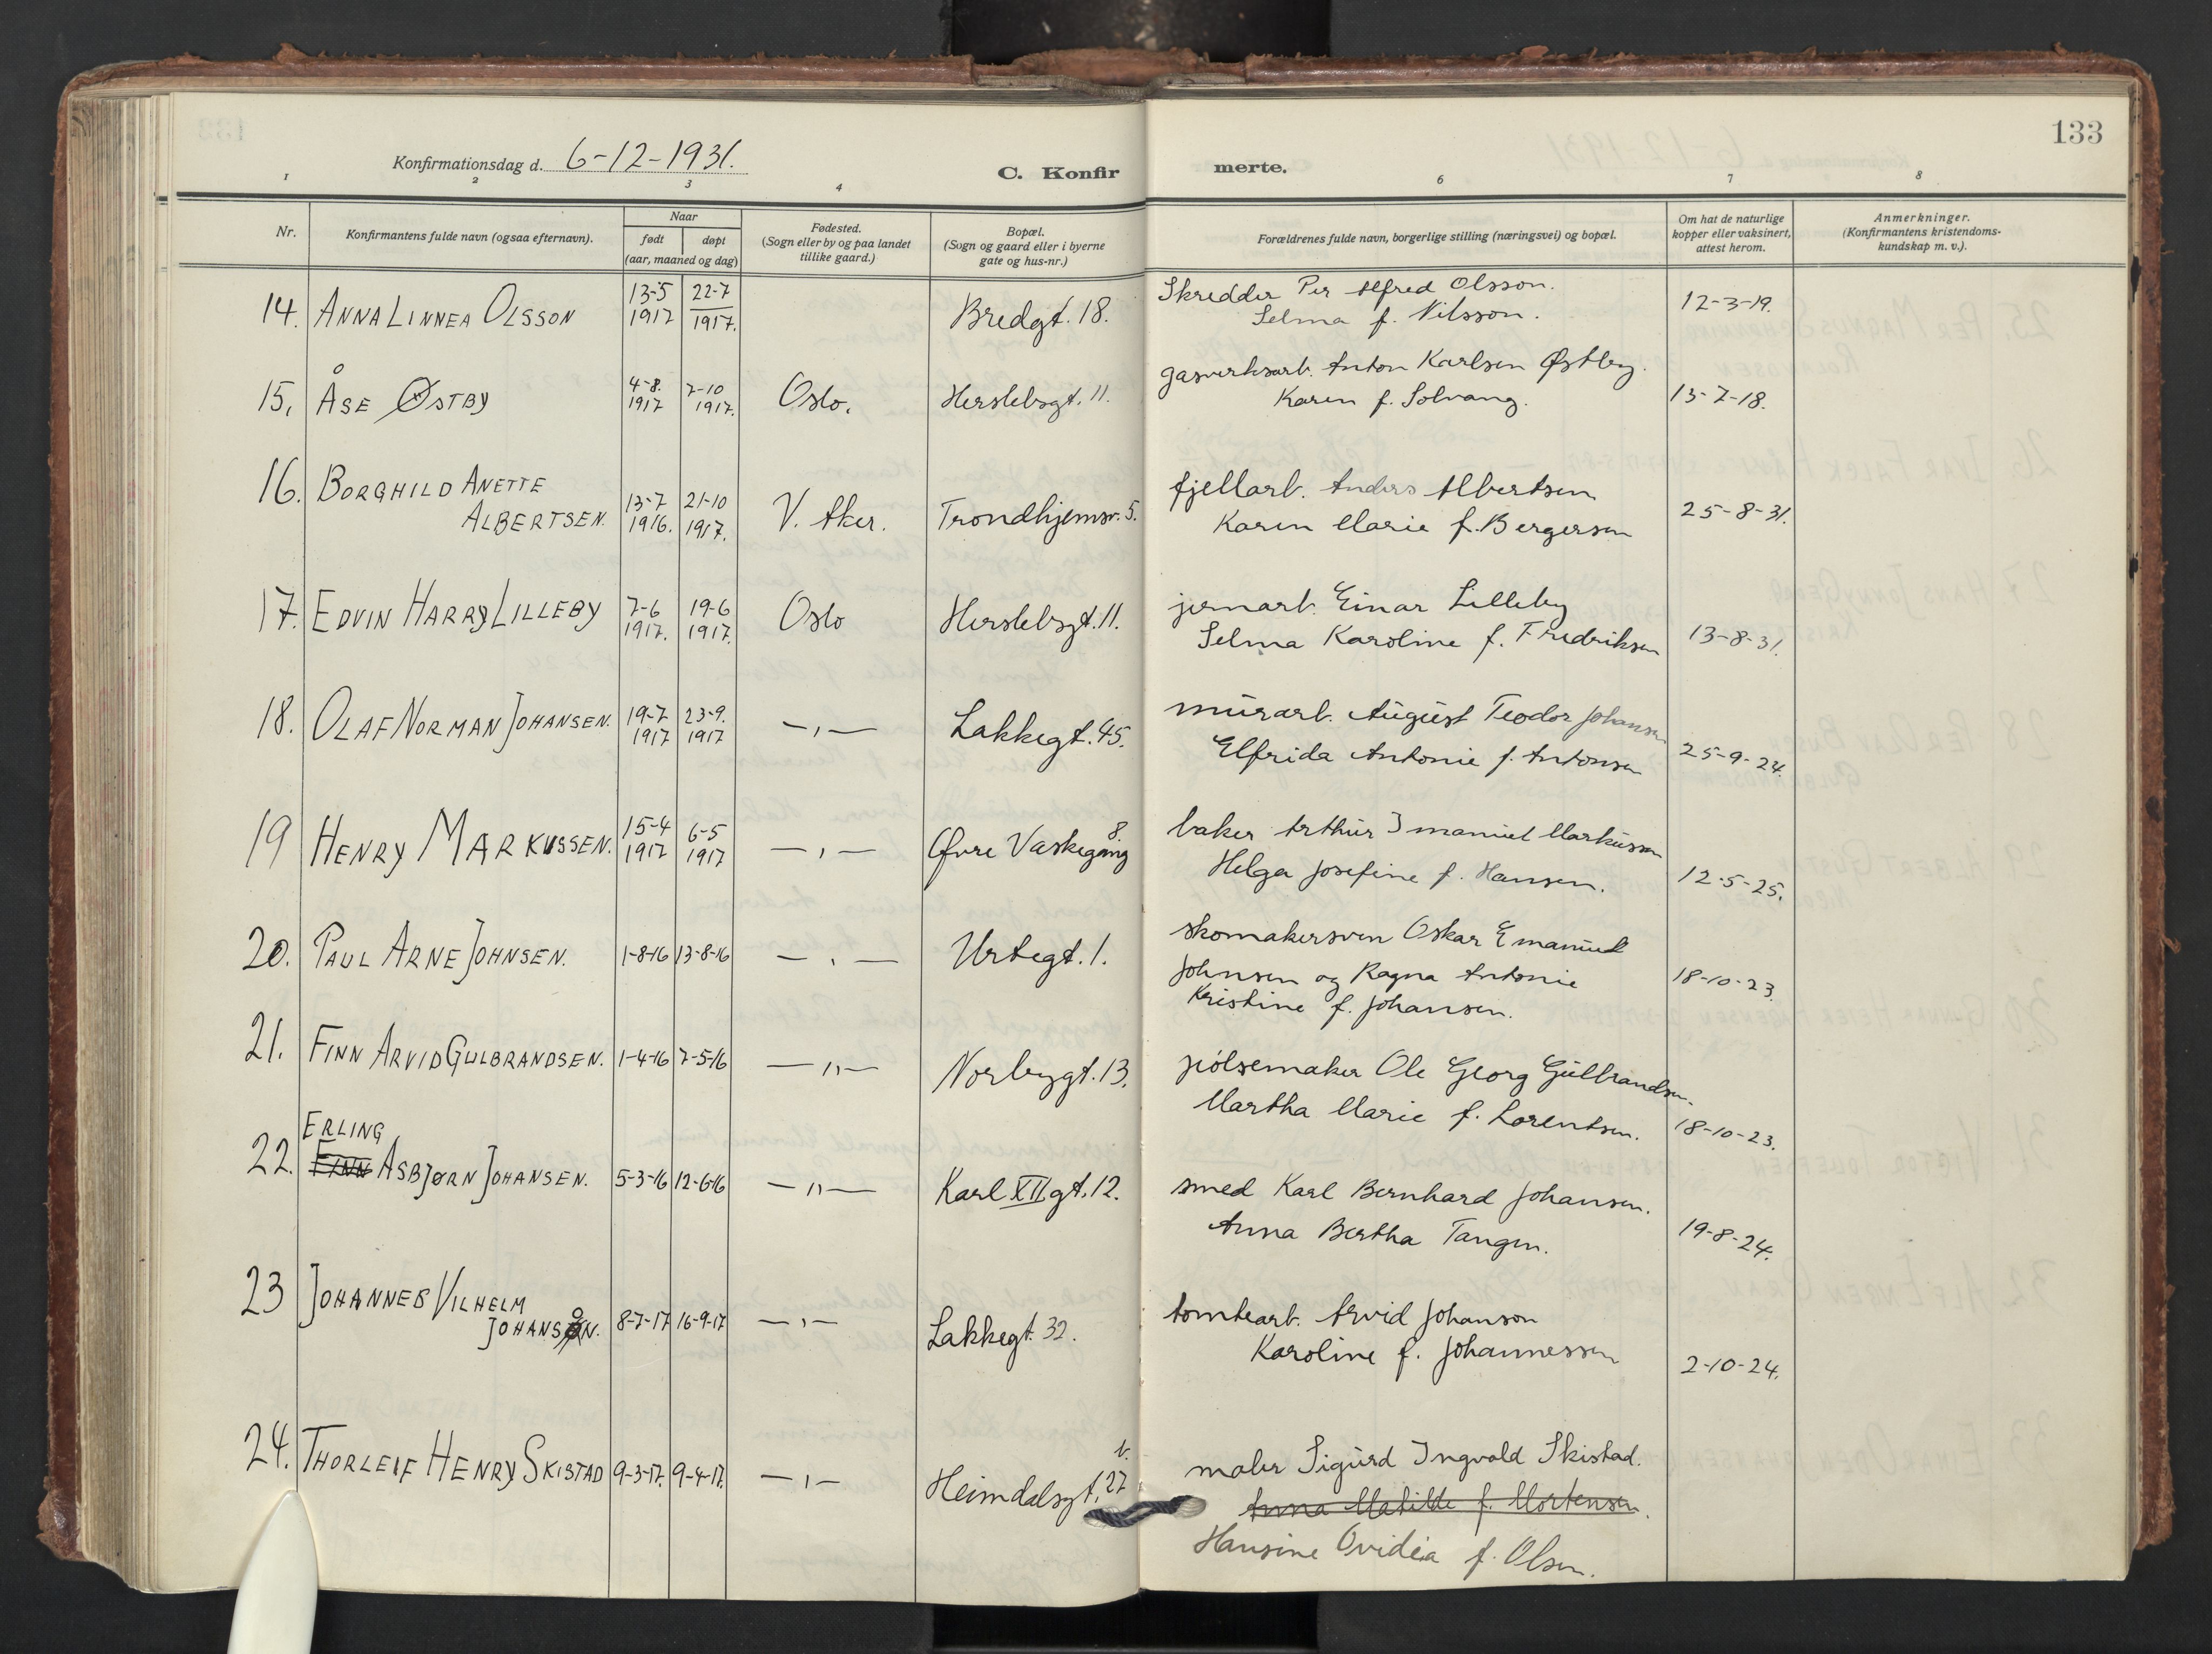 133
Konfirmationsdag d. 6-12-1931.
C. Konfirmerte.
1 2 3 4 6 7 8
Nr.
Konfirmantens fulde navn (ogsaa efternavn).
Naar
født døpt
(aar, maaned og dag)
Fødested.
(Sogn eller by og paa landet
tillike gaard.)
Bopæl.
(Sogn og gaard eller i byerne
gate og hus-nr.)
Forældrenes fulde navn, borgerlige stilling (næringsvei) og bopæl.
Om hat de naturlige
kopper eller vaksinert,
attest herom.
Anmerkninger.
(Konfirmantens kristendoms-
kundskap m. v.).
14. ANNA LINNEA OLSSON 13-5 1917 22-7 1917. Bredgt. 18. Skredder Per Alfred Olsson. 12-3-19.
Selma f. Nilsson.
15. ÅSE ØSTBY 4-8. 1917 7-10 1917. Oslo. Herslebsgt. 11. gasverksarb. Anton Karlsen Østby. 13-7-18.
Karen f. Solvang.
16. BORGHILD ANETTE
ALBERTSEN. 13-7 1916. 21-10 1917. V. Aker. Trondhjemsv. 5. fjellarb. Anders Albertsen 25-8-31.
Karen Marie f. Bergersen
17. EDVIN HARRY LILLEBY 7-6 1917. 19-6 1917. Oslo Herslebsgt. 11. jernarb. Einar Lilleby
Selma Karoline f. Fredriksen 13-8-31.
18. OLAF NORMAN JOHANSEN. 19-7 1917 23-9. 1917 —,— Lakkegt. 45. murarb. August Teodor Johansen
Elfrida Antonie f. Antonsen 25-9-24.
19 HENRY MARKUSSEN. 15-4 1917 6-5 1917 —,— Øvre Vaskegang 8. baker Arthur Imanuel Markussen
Helga Josefine f. Hansen. 12-5-25.
20. PAUL ARNE JOHNSEN. 1-8-16 13-8-16 —,— Urtegt. 1. skomakersven Oskar Emanuel
Johnsen og Ragna Antonie 18-10-23.
Kristine f. Johansen.
21. FINN ARVID GULBRANDSEN. 1-4-16 7-5-16 —"— Norbygt. 13. pølsemaker Ole Georg Gulbrandsen.
Martha Marie f. Lorentsen. 18-10-23.
ERLING
22. FINN ASBJØRN JOHANSEN. 5-3-16 12-6-16 —"— Karl XII gt. 12. smed Karl Bernhard Johansen.
Anna Bertha Tangen. 19-8-24.
23 JOHANNES VILHELM
JOHANSON. 8-7-17 16-9-17 —,— Lakkegt. 32. tomtearb. Arvid Johanson
Karoline f. Johannessen 2-10-24.
24. THORLEIF HENRY SKISTAD 9-3-17. 9-4-17. —,— Heimdalsgt. 27 b. maler Sigurd Ingvald Skistad.
Anna Matilde f. Mortensen.
Hansine Ovidia f. Olsen.